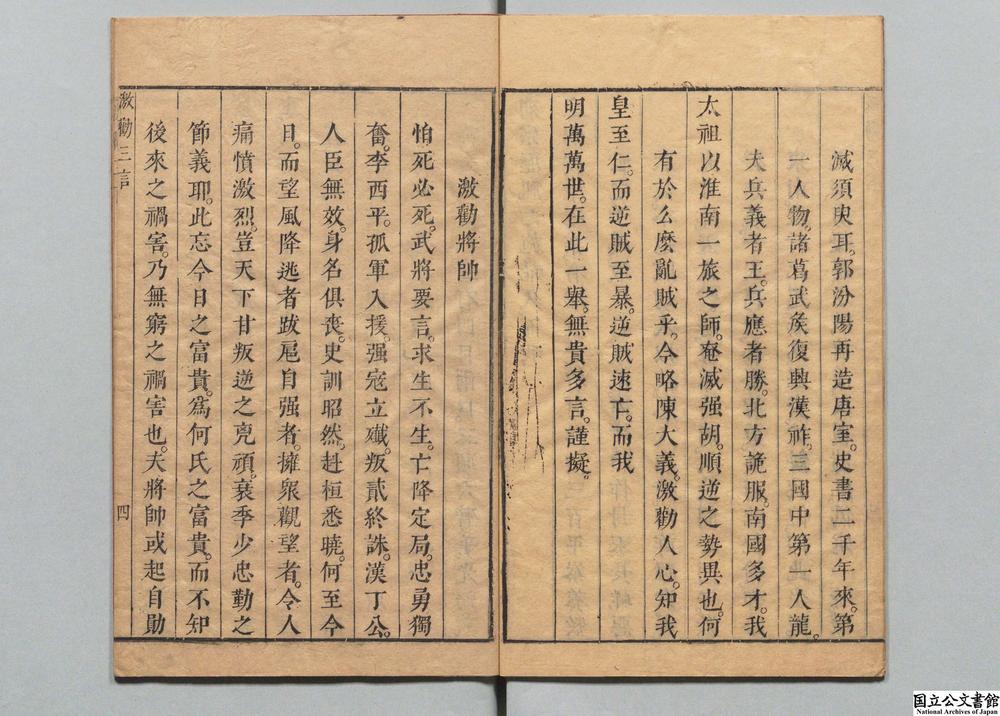 滅須臾耳。郭汾陽再造唐室。史書二千年來。第
一人物。諸葛武矦復興漢祚。三國中第一人龍。
夫兵義者王。兵應者勝。北方詭服。南國多才。我
太祖以淮南一旅之師。奄滅强胡。順逆之勢異也。何
有於么麽亂賊乎。今略陳大義。激勸人心。知我
皇至仁。而逆賊至暴。逆賊速亡。而我
明萬萬世。在此一舉。無貴多言。謹擬。
激勸將帥
怕死必死。武將要言。求生不生。亡降定局。忠勇獨
奮。李西平。孤軍入援。强寇立殱。叛貳終誅。漢丁公。
人臣無效。身名俱喪。史訓昭然。赳桓悉曉。何至今
日。而望風降逃者。跋扈自强者。擁衆觀望者。令人
痛憤激烈。豈天下甘叛逆之兇頑。衰季少忠勤之
節義耶。此忘今日之富貴。爲何氏之富貴。而不知
後來之禍害。乃無窮之禍害也。夫將帥或起自勛
激勸三言
四
国立公文書館
National Archives of Japan